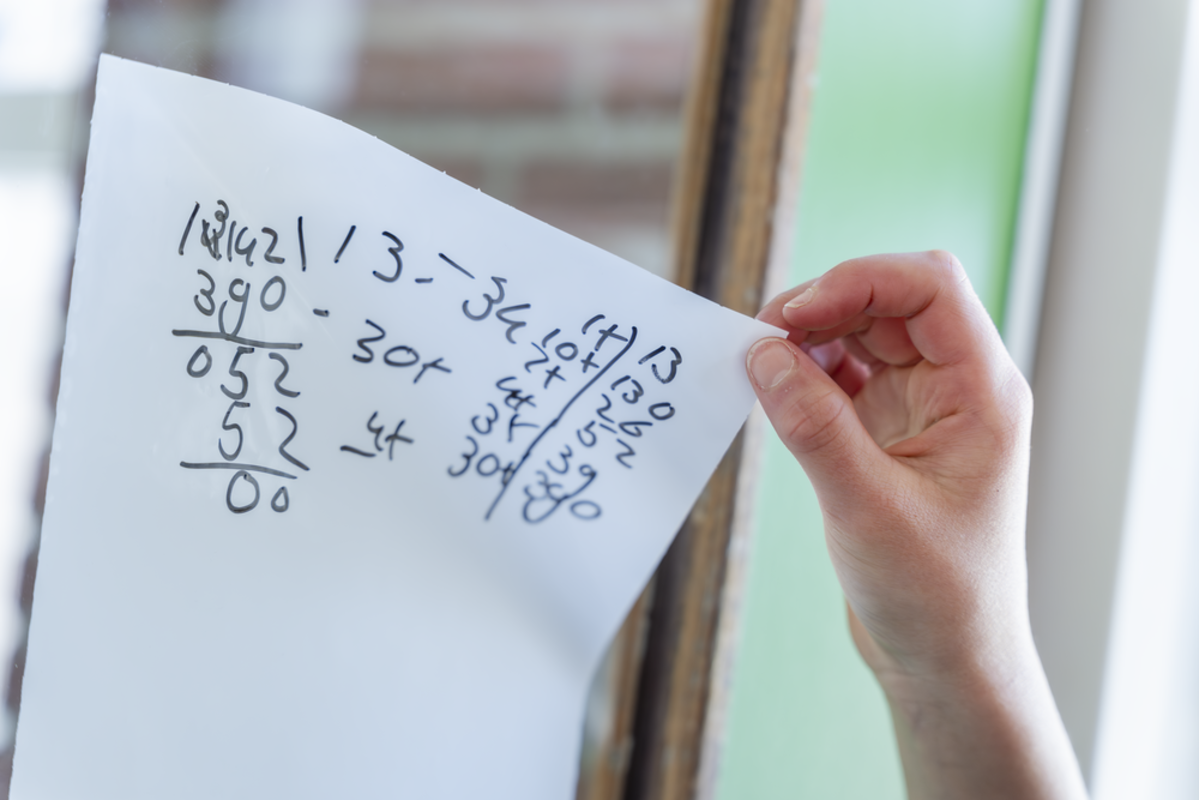 442 | 13 = 34
390 - 30+
052
52 - 4+
00
1+ | 13
10+ | 130
2+ | 26
4+ | 52
3+ | 39
30+ | 390